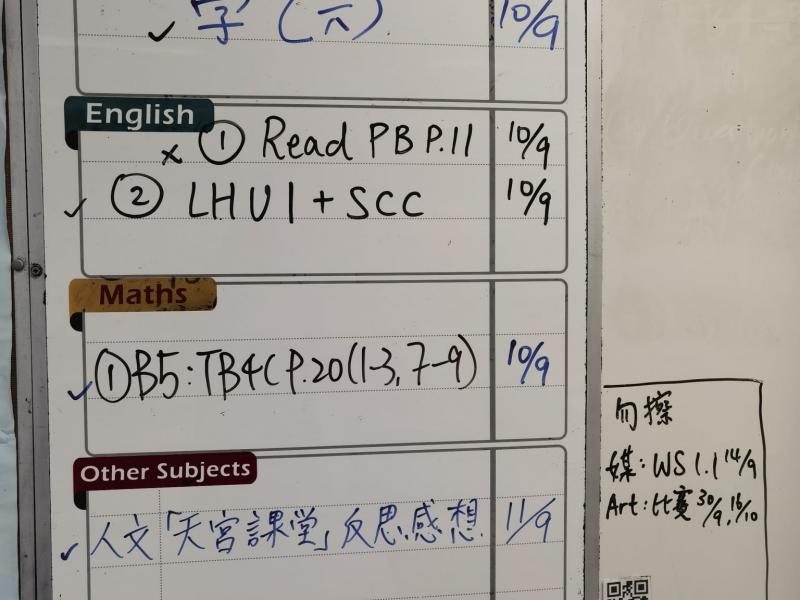 ✓ 字(六) 10/9
English
× ① Read PB P.11 10/9
✓ ② LHU1 + SCC 10/9
Maths
✓ ① B5: TB4C P.20(1-3, 7-9) 10/9
Other Subjects
✓ 人文「天宮課堂」反思感想 11/9
勿擦
媒: WS 1.1 14/9
Art: 比賽 30/9, 16/10